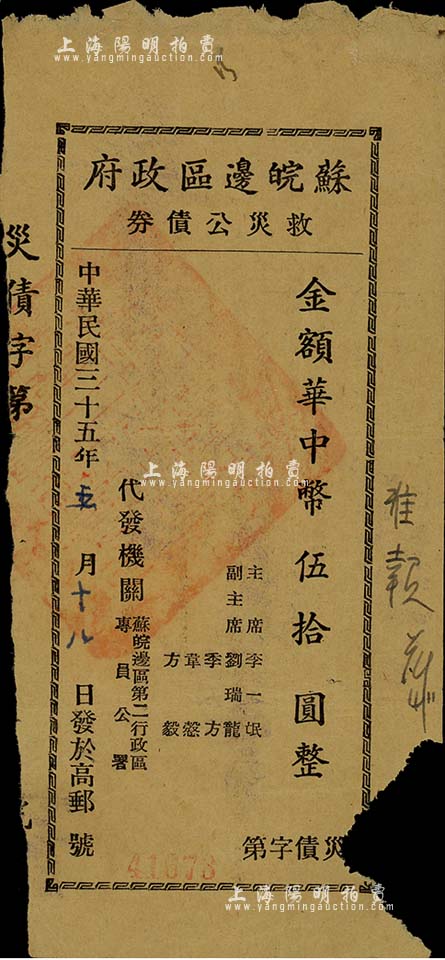 上海陽明拍賣
www.yangmingauction.com
蘇皖邊區政府
救災公債券
金額華中幣伍拾圓整
主席李一氓
副主席劉瑞龍
季方
韋慤
方毅
代發機關蘇皖邊區第二行政區
專員公署
中華民國三十五年五月十八日發於高郵
災債字第
號
41673
災債字第
上海陽明拍賣
www.yangmingauction.com
上海陽明拍賣
www.yangmingauction.com